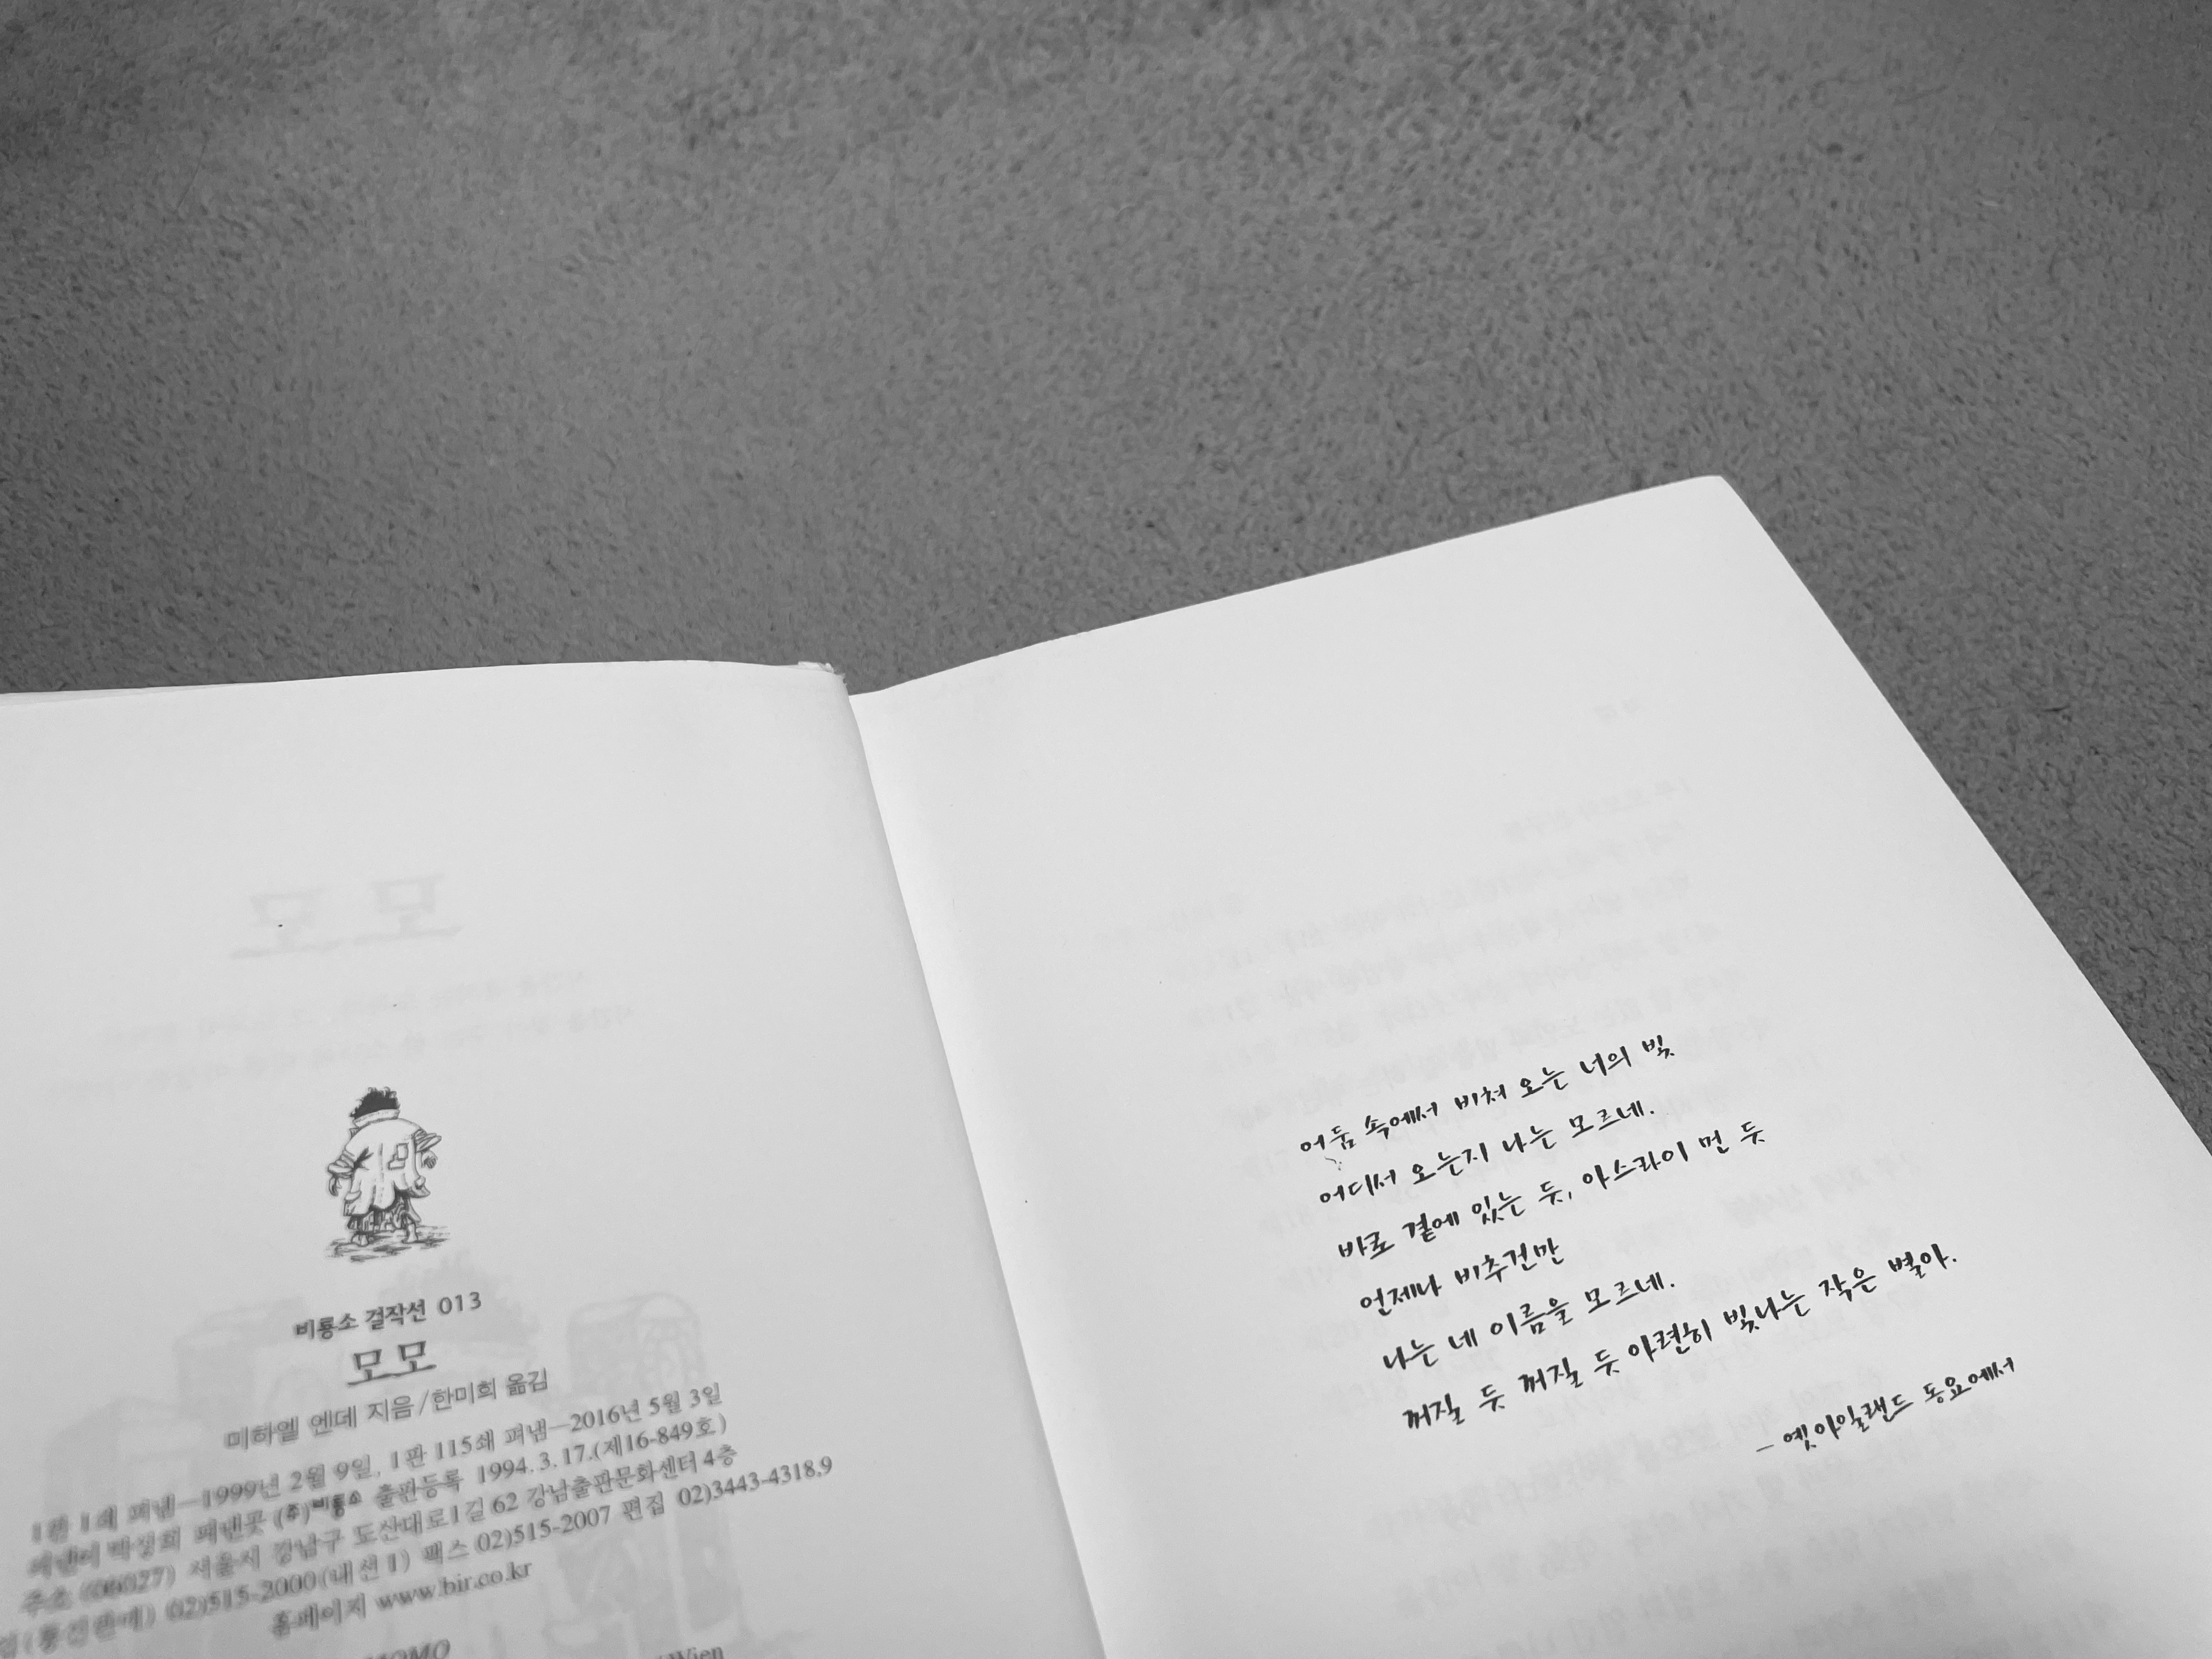 비룡소 걸작선 013
모모
미하엘 엔데 지음/한미희 옮김
1판 1쇄 펴냄—1999년 2월 9일, 1판 115쇄 펴냄—2016년 5월 3일
펴낸이 박상희 펴낸곳 (주)비룡소 출판등록 1994. 3. 17.(제16-849호)
주소 (06027) 서울시 강남구 도산대로1길 62 강남출판문화센터 4층
(통신판매) 02)515-2000(내선 1) 팩스 02)515-2007 편집 02)3443-4318,9
홈페이지 www.bir.co.kr
MOMO
Wien
어둠 속에서 비쳐 오는 너의 빛
어디서 오는지 나는 모르네.
바로 곁에 있는 듯, 아스라이 먼 듯
언제나 비추건만
나는 네 이름을 모르네.
꺼질 듯 꺼질 듯 아련히 빛나는 작은 별아.
– 옛 아일랜드 동요에서